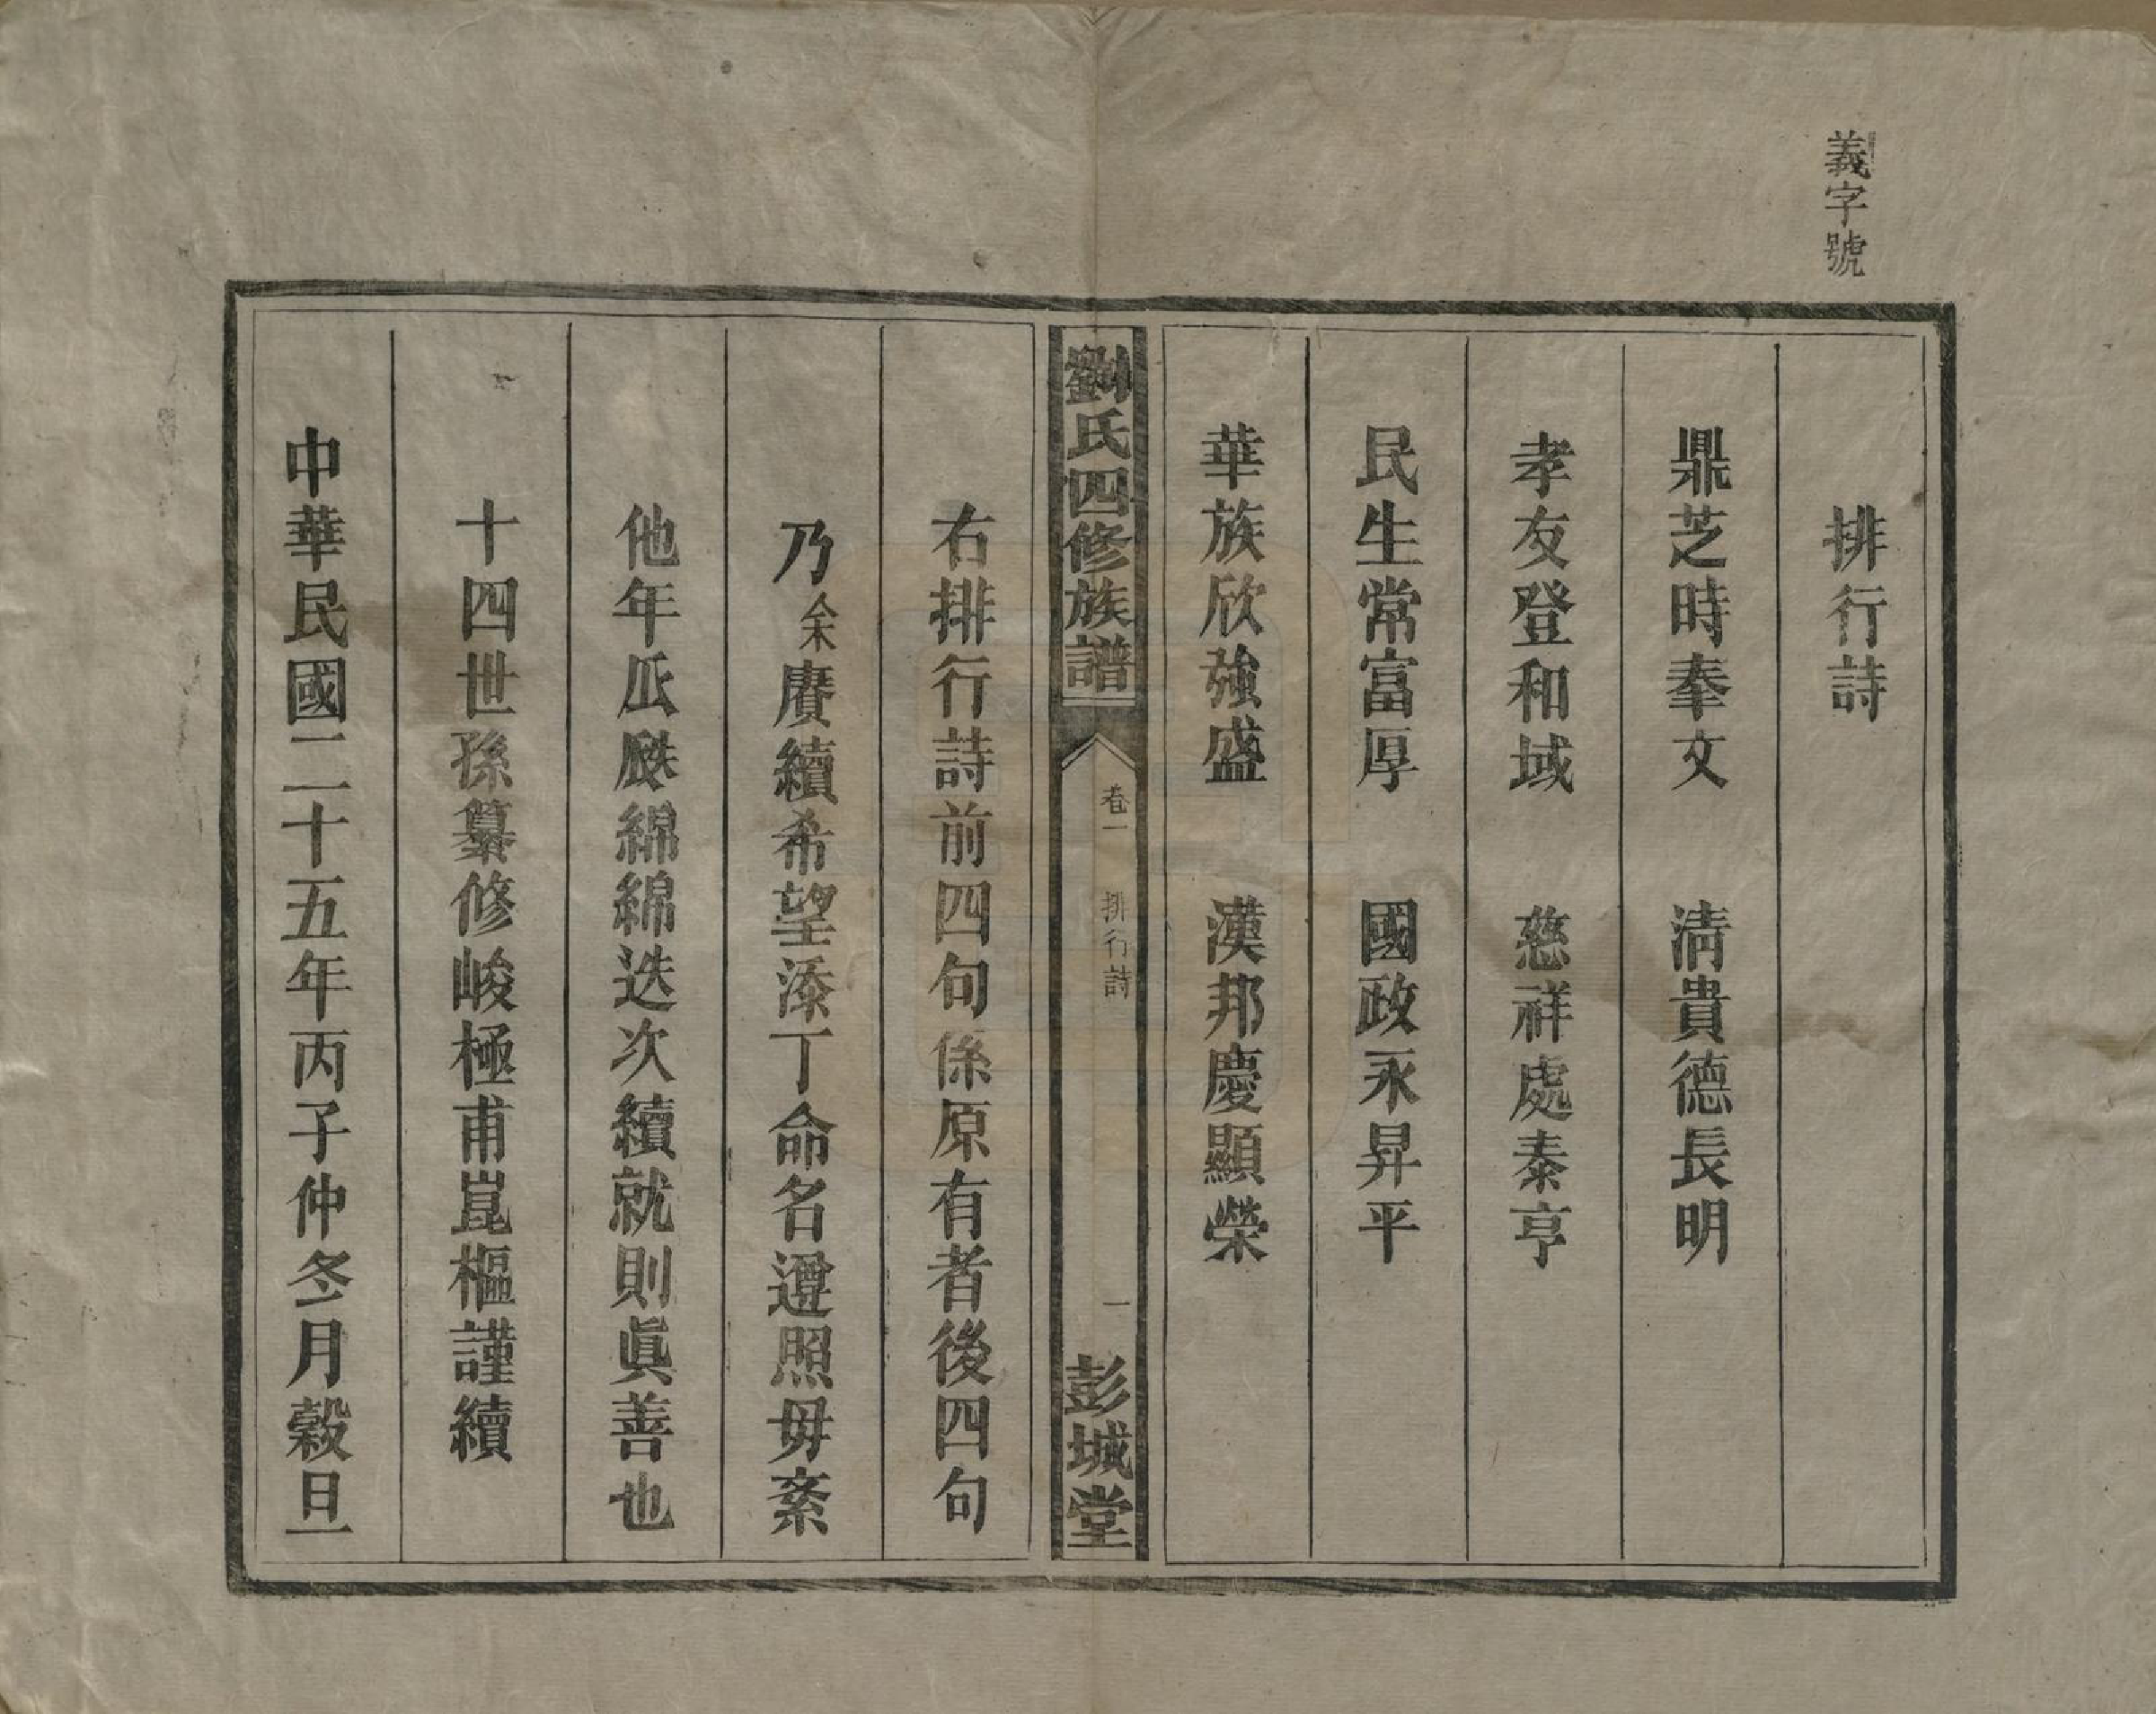 義字號
排行詩
鼎芝時奉文　清貴德長明
孝友登和域　慈祥處泰亨
民生常富厚　國政永昇平
華族欣強盛　漢邦慶顯榮
劉氏四修族譜　卷一　排行詩　一　彭城堂
右排行詩前四句係原有者後四句
乃余賡續希望添丁命名遵照毋紊
他年瓜瓞綿綿迭次續就則眞善也
十四世孫纂修峻極甫崑樞謹續
中華民國二十五年丙子仲冬月穀旦